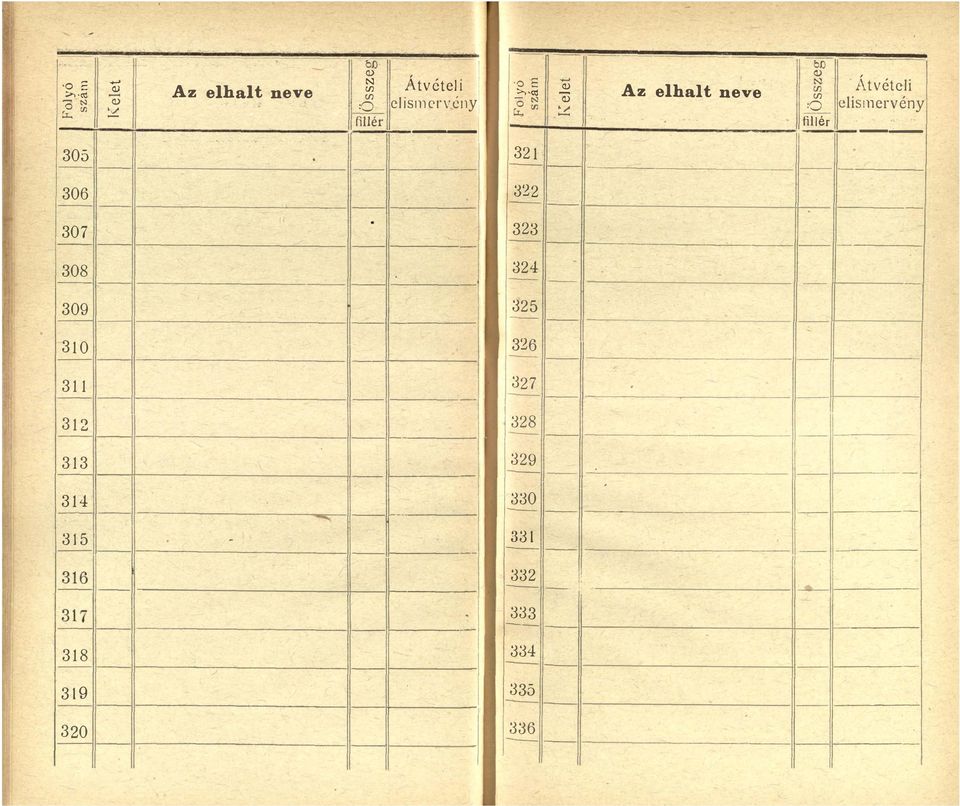 Folyó
szám
Kelet
Az elhalt neve
Összeg
fillér
Átvételi
elismervény
305
306
307
308
309
310
311
312
313
314
315
316
317
318
319
320
Folyó
szám
Kelet
Az elhalt neve
Összeg
fillér
Átvételi
elismervény
321
322
323
324
325
326
327
328
329
330
331
332
333
334
335
336